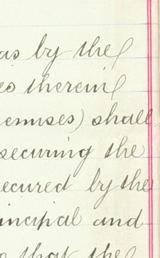 as by the
es therein
remises) shall
securing the
secured by the
incipal and
that the